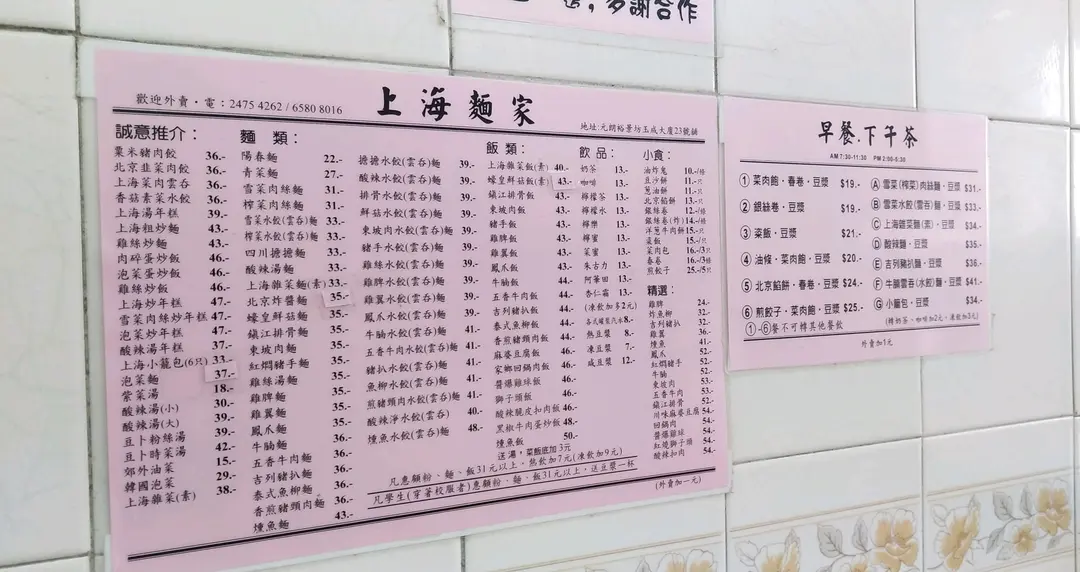 多謝合作
歡迎外賣・電：2475 4262 / 6580 8016
上海麵家
地址:元朗裕景坊玉成大廈23號舖
誠意推介：
粟米豬肉餃 36.-
北京韭菜肉餃 36.-
上海菜肉雲吞 36.-
香菇素菜水餃 36.-
上海湯年糕 39.-
上海粗炒麵 43.-
雞絲炒麵 43.-
肉碎蛋炒飯 46.-
泡菜蛋炒飯 46.-
雞絲炒飯 46.-
上海炒年糕 47.-
雪菜肉絲炒年糕 47.-
泡菜炒年糕 47.-
酸辣湯年糕 37.-
上海小籠包(6只) 33.-
泡菜麵 37.-
紫菜湯 18.-
酸辣湯(小) 30.-
酸辣湯(大) 39.-
豆卜粉絲湯 39.-
豆卜時菜湯 42.-
郊外油菜 15.-
韓國泡菜 29.-
上海雜菜(素) 38.-
麵 類：
陽春麵 22.-
青菜麵 27.-
雪菜肉絲麵 31.-
榨菜肉絲麵 31.-
雪菜水餃(雲吞)麵 33.-
榨菜水餃(雲吞)麵 33.-
四川擔擔麵 33.-
酸辣湯麵 33.-
上海雜菜麵(素) 33.-
北京炸醬麵 35.-
蠔皇鮮菇麵 35.-
鎮江排骨麵 35.-
東坡肉麵 35.-
紅燜豬手麵 35.-
雞絲湯麵 35.-
雞脾麵 35.-
雞翼麵 35.-
鳳爪麵 35.-
牛腩麵 36.-
五香牛肉麵 36.-
吉列豬扒麵 36.-
泰式魚柳麵 36.-
香煎豬頸肉麵 36.-
燻魚麵 43.-
擔擔水餃(雲吞)麵 39.-
酸辣水餃(雲吞)麵 39.-
排骨水餃(雲吞)麵 39.-
鮮菇水餃(雲吞)麵 39.-
東坡肉水餃(雲吞)麵 39.-
豬手水餃(雲吞)麵 39.-
雞絲水餃(雲吞)麵 39.-
雞脾水餃(雲吞)麵 39.-
雞翼水餃(雲吞)麵 39.-
鳳爪水餃(雲吞)麵 39.-
牛腩水餃(雲吞)麵 41.-
五香牛肉水餃(雲吞)麵 41.-
豬扒水餃(雲吞)麵 41.-
魚柳水餃(雲吞)麵 41.-
煎豬頸肉水餃(雲吞)麵 41.-
酸辣淨水餃(雲吞) 40.-
燻魚水餃(雲吞)麵 48.-
飯 類：
上海雜菜飯(素) 40.-
蠔皇鮮菇飯(素) 43.-
鎮江排骨飯 43.-
東坡肉飯 43.-
豬手飯 43.-
雞脾飯 43.-
雞翼飯 43.-
鳳爪飯 43.-
牛腩飯 44.-
五香牛肉飯 44.-
吉列豬扒飯 44.-
泰式魚柳飯 44.-
香煎豬頸肉飯 44.-
麻婆豆腐飯 46.-
家鄉回鍋肉飯 46.-
醬爆雞球飯 46.-
獅子頭飯 46.-
酸辣脆皮扣肉飯 46.-
黑椒牛肉蛋炒飯 48.-
燻魚飯 50.-
送湯，菜飯底加 3元
飲 品：
奶茶 13.-
咖啡 13.-
檸檬茶 13.-
檸檬水 13.-
檸樂 13.-
檸蜜 13.-
菜蜜 13.-
朱古力 13.-
阿華田 13.-
杏仁霜 13.-
(凍飲加多2元)
各式罐裝汽水 8.-
熱豆漿 7.-
凍豆漿 7.-
咸豆漿 12.-
小食：
油炸鬼 10.-/條
豆沙餅 11.-/只
蔥油餅 11.-/只
北京餡餅 13.-/只
銀絲卷 12.-/條
銀絲卷(炸) 14.-/條
洋蔥牛肉餅 15.-/只
粢飯 15.-/只
菜肉包 16.-/3只
春卷 16.-/3條
煎餃子 25.-/5只
精選：
雞脾 24.-
炸魚柳 32.-
吉列豬扒 32.-
雞翼 36.-
燻魚 41.-
鳳爪 52.-
紅燜豬手 52.-
牛腩 52.-
東坡肉 53.-
五香牛肉 53.-
鎮江排骨 52.-
川味麻婆豆腐 54.-
回鍋肉 54.-
醬爆雞球 54.-
紅燒獅子頭 54.-
酸辣扣肉 54.-
凡惠顧粉、麵、飯31元以上，熱飲加7元(凍飲加9元)
凡學生(穿著校服者)惠顧粉、麵、飯31元以上，送豆漿一杯
(外賣加一元)
早餐.下午茶
AM 7:30-11:30 PM 2:00-5:30
① 菜肉飽・春卷・豆漿 $19.-
② 銀絲卷・豆漿 $19.-
③ 粢飯・豆漿 $21.-
④ 油條・菜肉飽・豆漿 $20.-
⑤ 北京餡餅・春卷・豆漿 $24.-
⑥ 煎餃子・菜肉飽・豆漿 $25.-
①-⑥餐不可轉其他餐飲
Ⓐ 雪菜(榨菜)肉絲麵・豆漿 $31.-
Ⓑ 雪菜水餃(雲吞)麵・豆漿 $33.-
Ⓒ 上海雜菜麵(素)・豆漿 $34.-
Ⓓ 酸辣麵・豆漿 $35.-
Ⓔ 吉列豬扒麵・豆漿 $36.-
Ⓕ 牛腩雲吞(水餃)麵・豆漿 $41.-
Ⓖ 小籠包・豆漿 $34.-
(轉奶茶、咖啡加2元，凍飲加3元)
外賣加1元